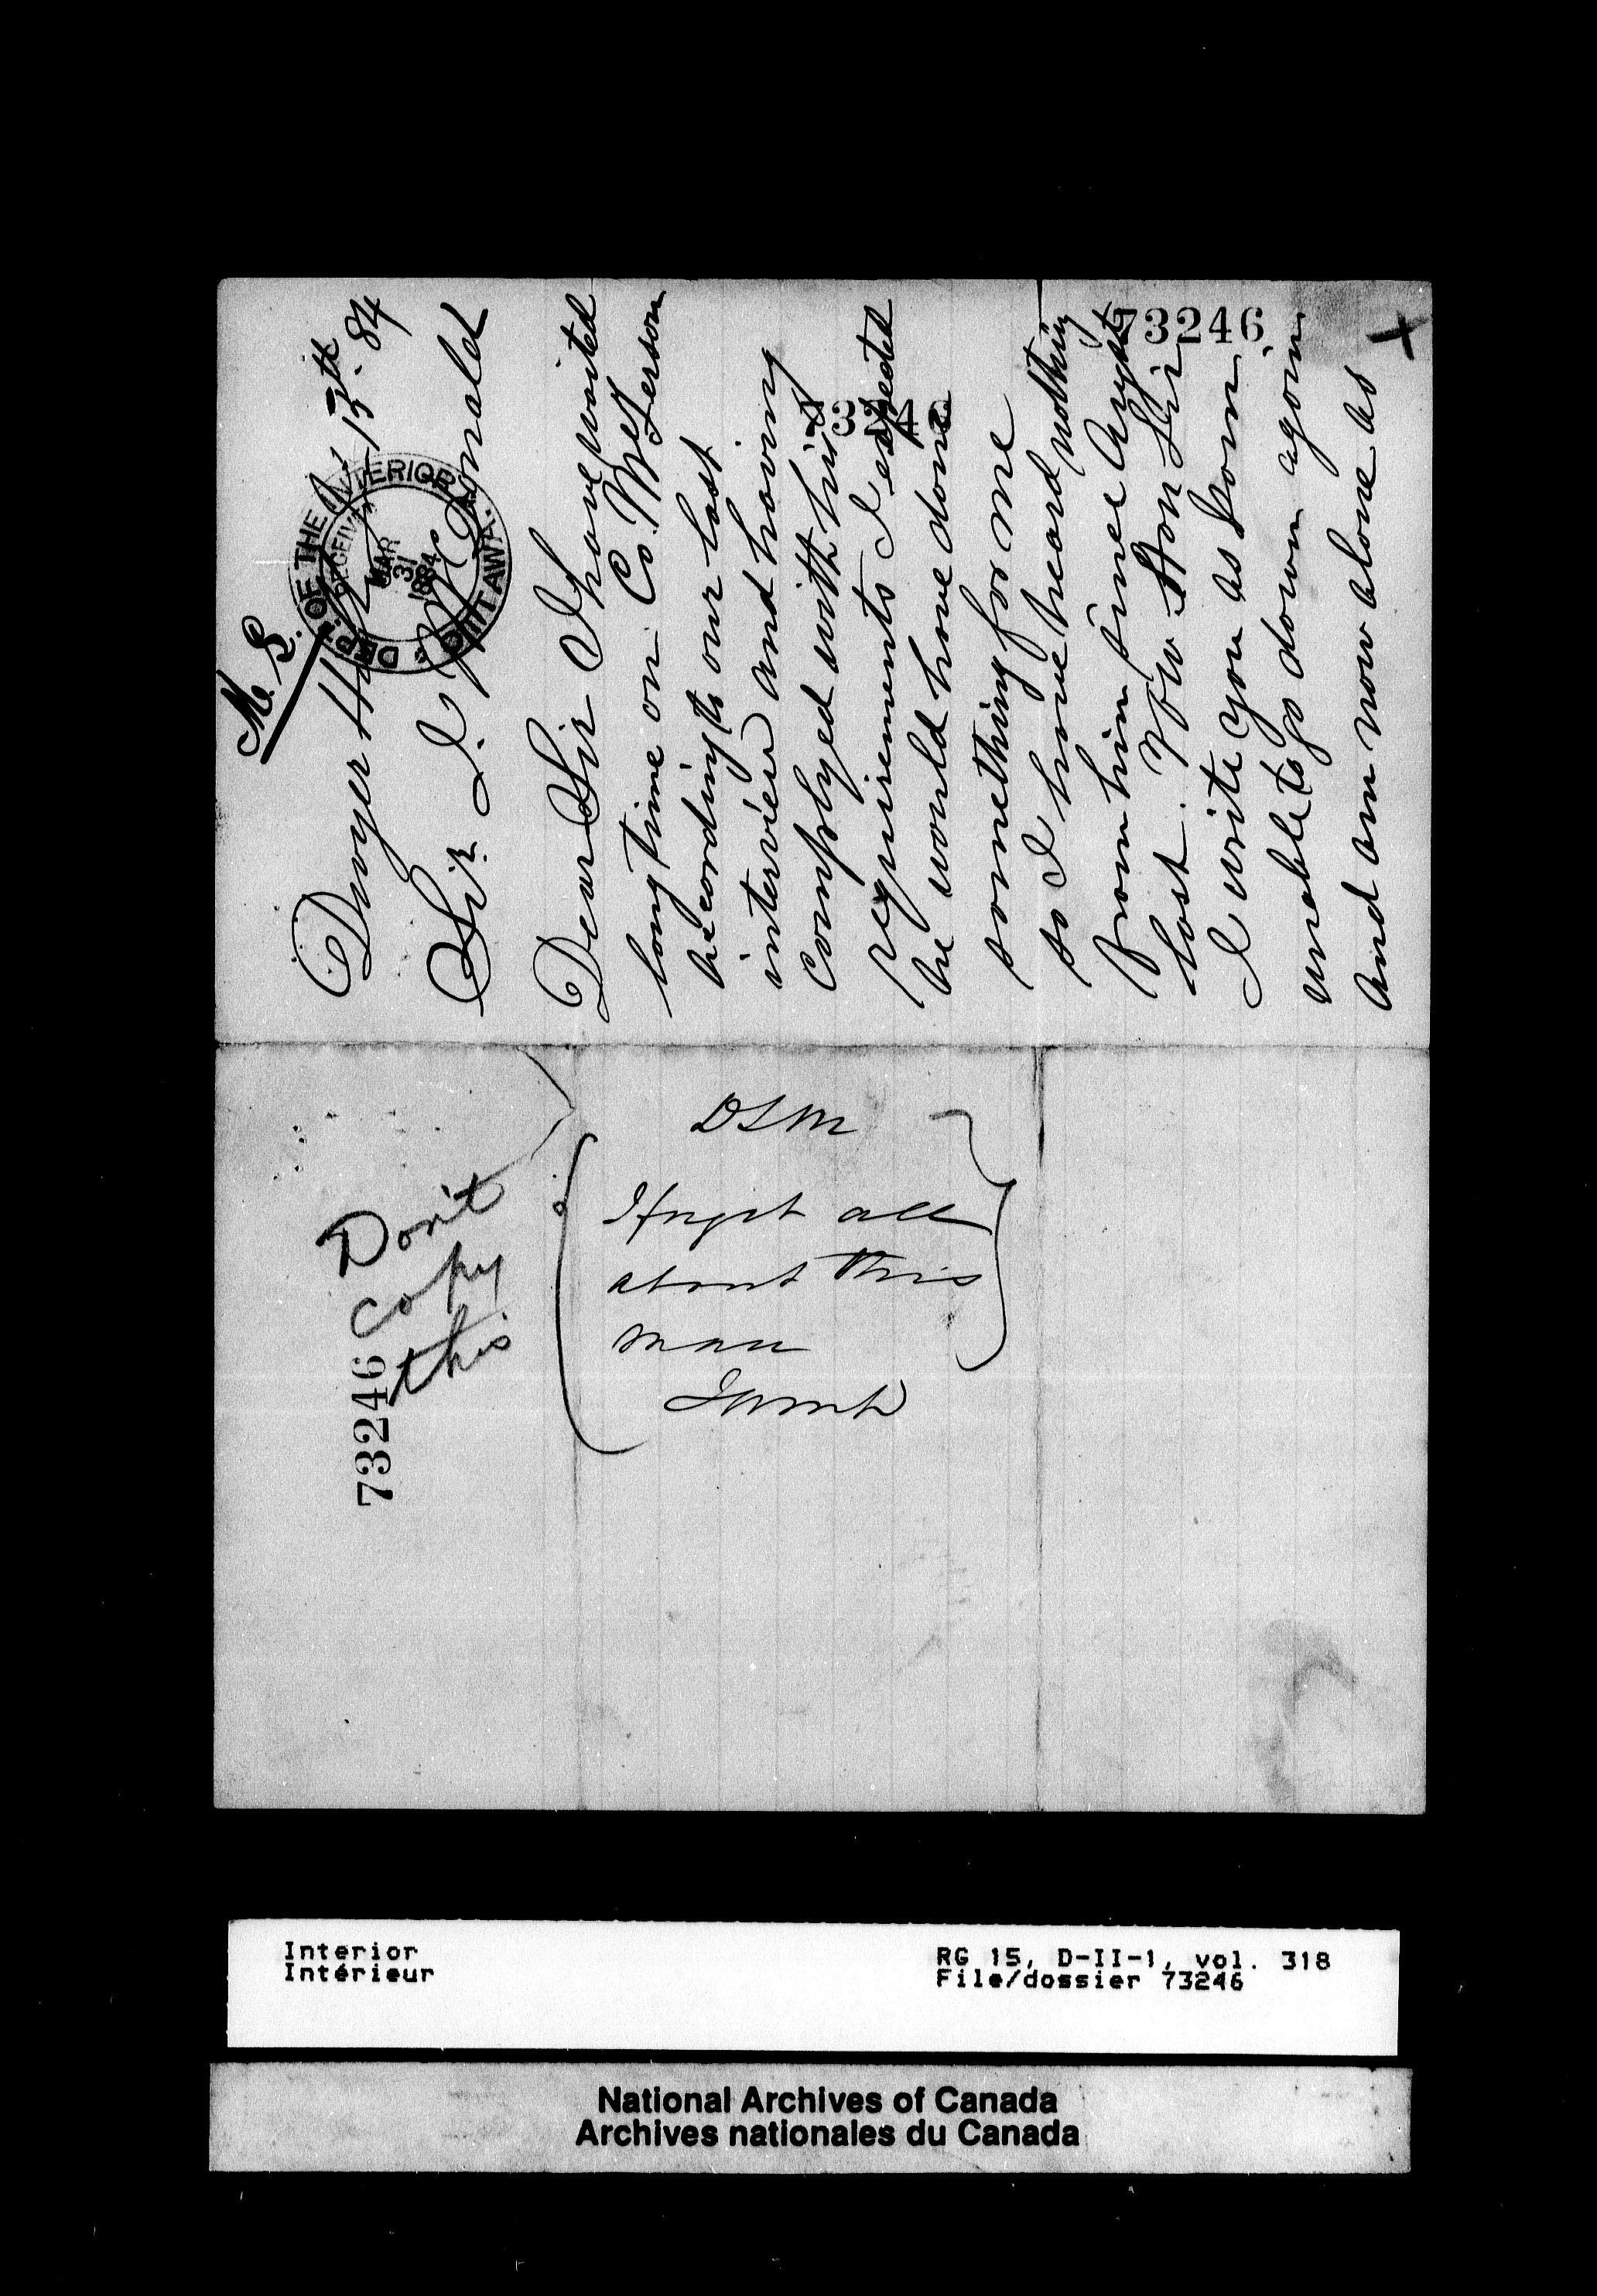 M. L.
Dwyer Hill 13th. 84
Sir. J. McDonald
DEPT. OF THE INTERIOR
RECEIVED
MAR
31
1884
OTTAWA
Dear Sir I have waited
long time on Co. McFerson
according to our last
interview and having
complyed with his
requirements I expected
he would have done
something for me
so I have heard nothing
from him since Augst
last. Now Hon Sir
I write you as I am
unable to go down again
and am now alone as
73246
73246
73246
Don't
copy
this
DLM
I forget all
about this
man
Interior
Intérieur
RG 15, D-II-1, vol. 318
File/dossier 73246
National Archives of Canada
Archives nationales du Canada